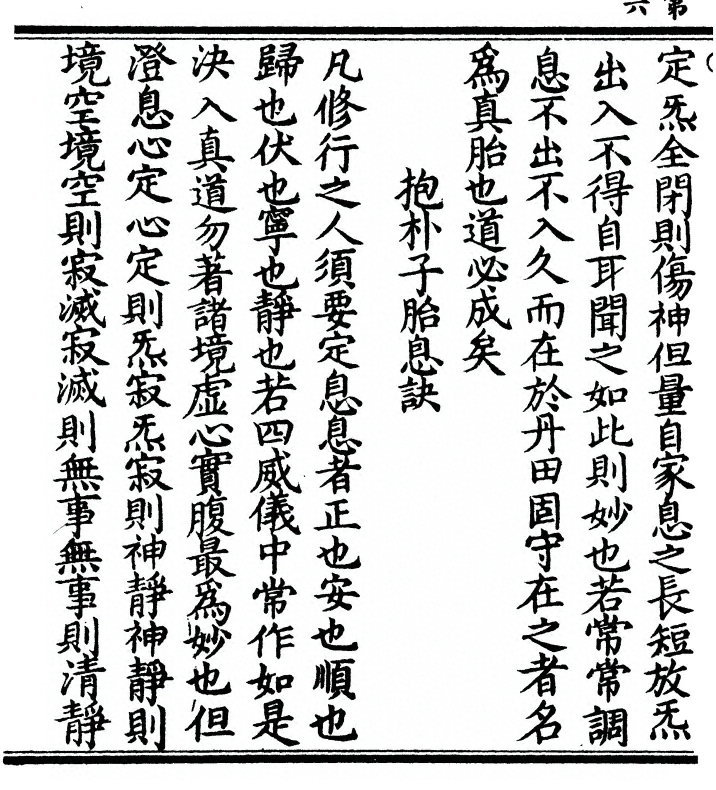 第六
定炁全閉則傷神但量自家息之長短放炁
出入不得自耳聞之如此則妙也若常常調
息不出不入久而在於丹田固守在之者名
爲真胎也道必成矣
抱朴子胎息訣
凡修行之人須要定息息者正也安也順也
歸也伏也寧也靜也若四威儀中常作如是
決入真道勿著諸境虛心實腹最爲妙也但
澄息心定心定則炁寂炁寂則神靜神靜則
境空境空則寂滅寂滅則無事無事則清靜